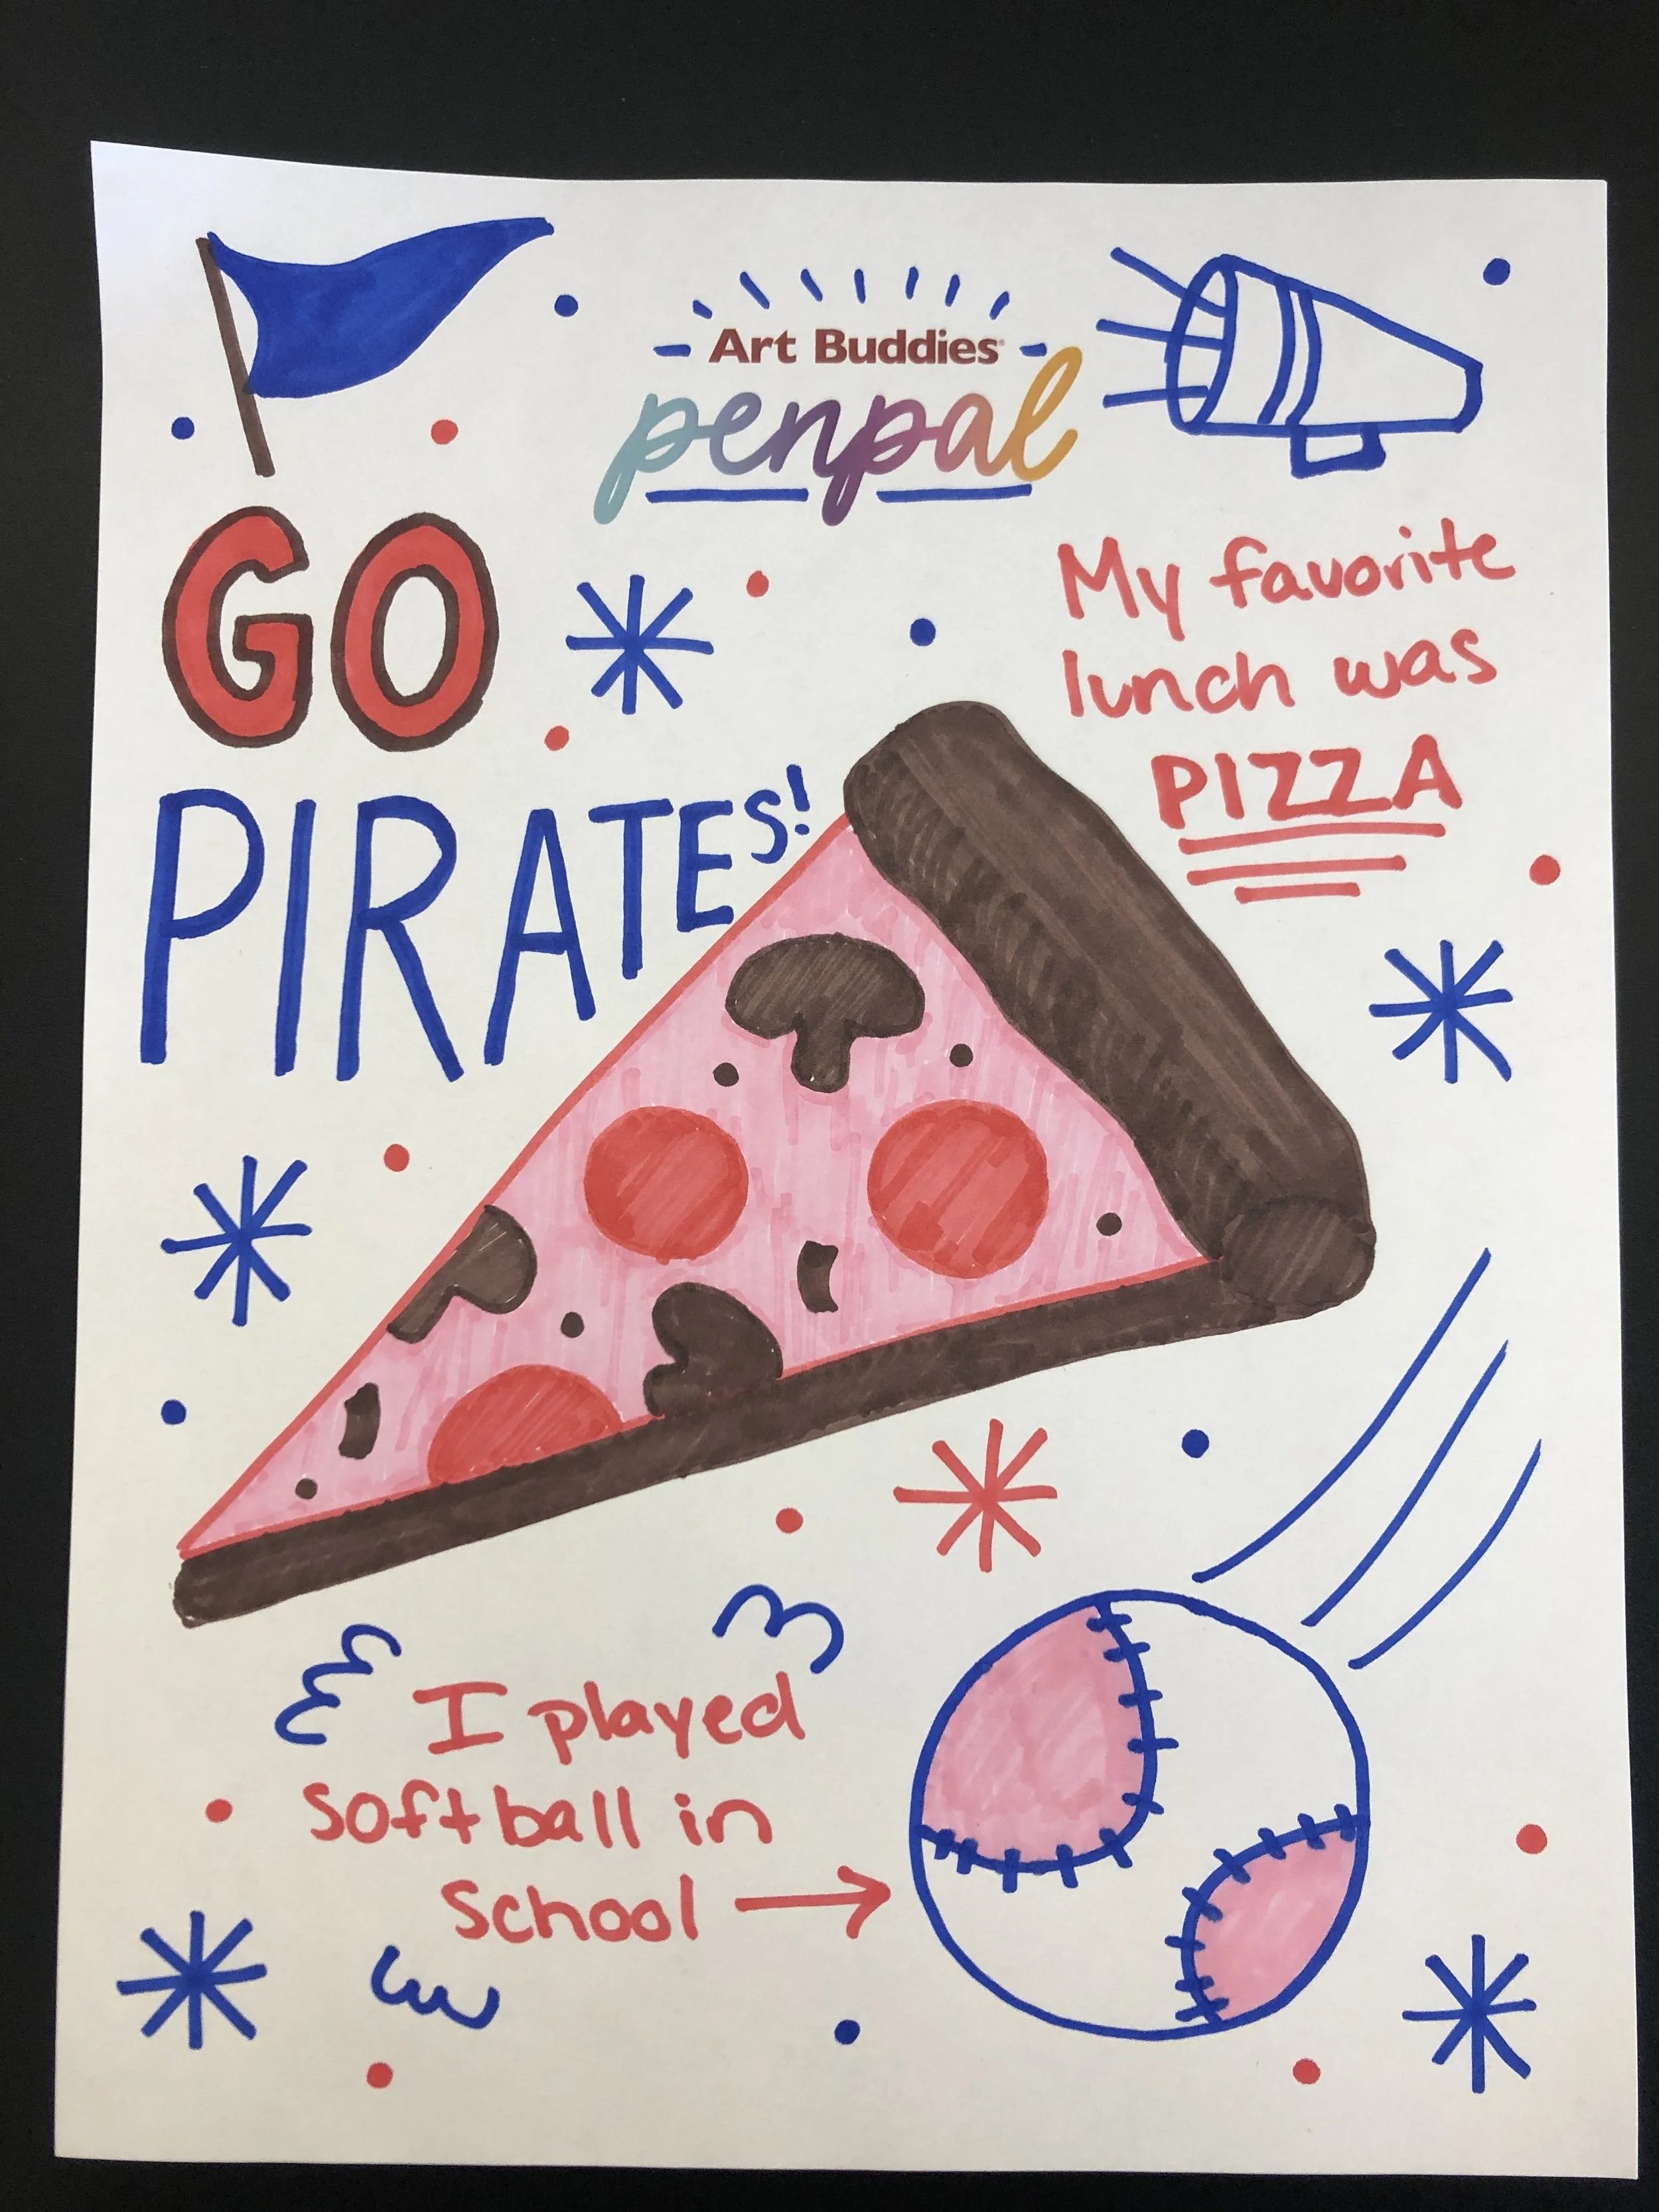 Art Buddies
penpal
GO
PIRATES!
My favorite
lunch was
PIZZA
I played
softball in
school